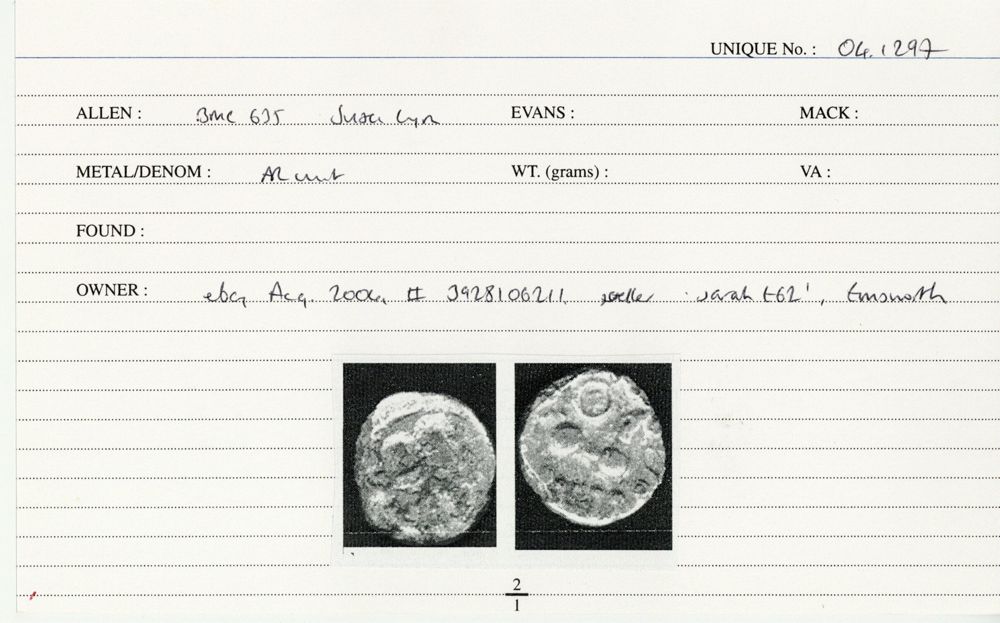 UNIQUE No. : 04.1297
ALLEN : BMC 635 Susex Lyre EVANS : MACK :
METAL/DENOM : AR unit WT. (grams) : VA :
FOUND :
OWNER : ebay Acq. 2004, # 3928106211, seller 'sarah t62', Emsworth
2
1